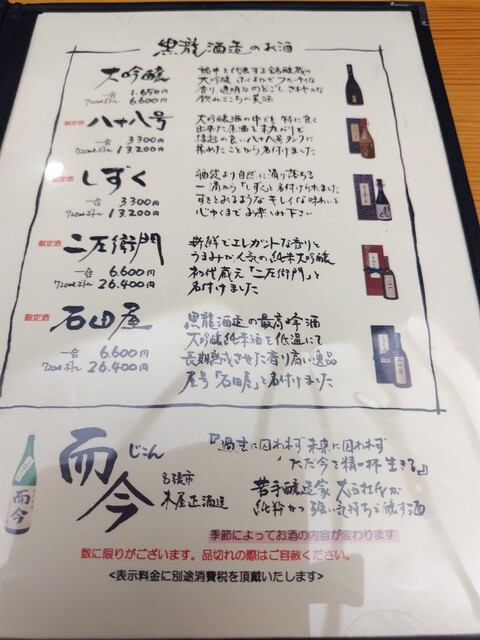 黒龍酒造のお酒
大吟醸
一合 1.650円
720mlボトル 6.600円
大吟醸
香り、透明なのどごし さわやかな
飲みごこちの美酒
限定酒
八十八号
一合 3300円
720mlボトル 13,200円
大吟醸酒の中でも 特に良く
出来た原酒を
縁起の良い八十八号タンクに
集めたことから名付けました
限定酒
しずく
一合 3300円
720mlボトル 13,200円
酒袋より自然に滴り落ちる
一滴から「しずく」と名付けられました
すきとおるような キレイな味わいを
心ゆくまでお楽しみ下さい
限定酒
二左衛門
一合 6.600円
720mlボトル 26.400円
新鮮でエレガントな香りと
うまみが人気の純米大吟醸
初代蔵元「二左衛門」と
名付けました
限定酒
石田屋
一合 6.600円
720mlボトル 26.400円
黒龍酒造の最高峰酒
大吟醸純米酒を低温にて
長期熟成させた香り高い逸品
屋号「石田屋」と名付けました
而今
じこん
名張市
木屋正酒造
『過去に囚われず 未来に囚われず
ただ今を精一杯生きる』
若手醸造家 大西杜氏が
純粋かつ強い気持ちで醸す酒
而今
季節によってお酒の内容が変わります
数に限りがございます。品切れの際はご容赦ください。
<表示料金に別途消費税を頂戴いたします>